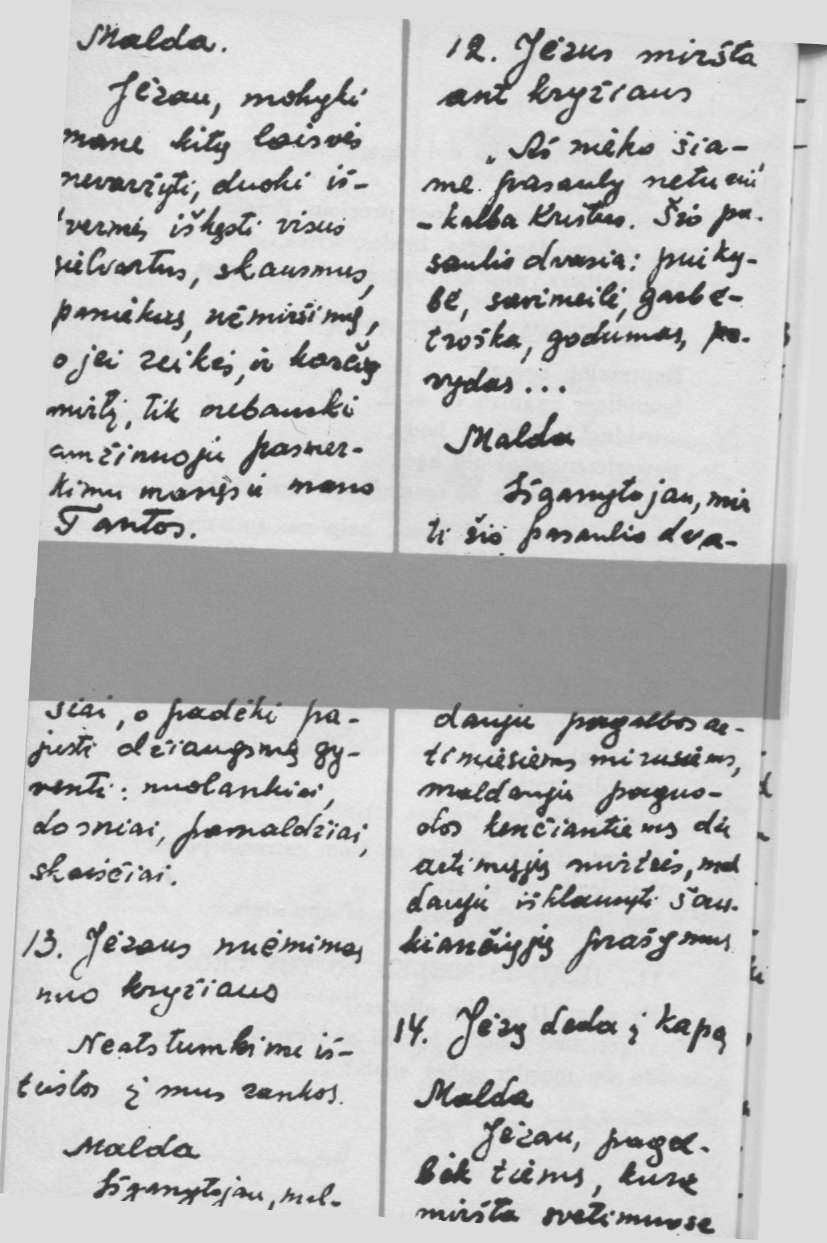 Malda.
Jėzau, mokyki
mane kitų laisvės
nevaržyti, duoki iš-
vermės iškęsti visus
sielvartus, skausmus,
paniekas, užmiršimą,
o jei reikės, ir karčią
mirtį, tik
amžinuoju pasmer-
kimu manęs ir mano
Tautos.
12. Jėzus miršta
ant kryžiaus
„Aš nieko šia-
me pasauly neturiu"
- kalba Kristus. Šio pa-
saulio dvasia: puiky-
bė, savimeilė, garbė-
troška, godumas, pa-
vydas ...
Malda
Išganytojau, mir
ti šio pasaulio dva-
siai, o padėki pa-
justi džiaugsmą gy-
venti: nuolankiai,
dosniai, pamaldžiai,
skaisčiai.
13. Jėzaus nuėmimas
nuo kryžiaus
Neatstumkime iš-
tiestos į mus rankos.
Malda
Išganytojau, mel-
dauju pagalbos ar-
timiesiems mirusiems,
maldauju paguo-
dos kenčiantiems dėl
artimųjų mirties, mal
dauju išklausyti šau-
kiančiųjų prašymus
14. Jėzų deda į kapą
Malda
Jėzau, pagel-
bėk tiems, kurie
miršta svetimuose